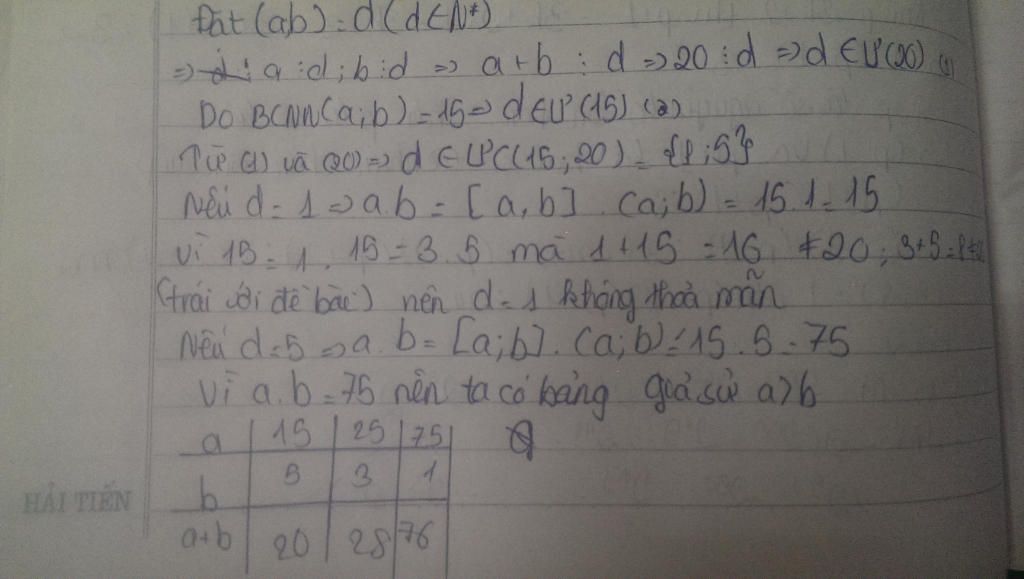 Đặt (a,b) = d (d ∈ N*)
=> a ⋮ d ; b ⋮ d => a + b ⋮ d => 20 ⋮ d => d ∈ Ư(20) (1)
Do BCNN(a;b) = 15 => d ∈ Ư(15) (2)
Từ (1) và (2) => d ∈ ƯC(15;20) = {1;5}
Nếu d = 1 => a.b = [a,b] . (a;b) = 15.1 = 15
Vì 15 = 1.15 = 3.5 mà 1+15 = 16 ≠ 20 ; 3+5 = 8 ≠
(trái với đề bài) nên d = 1 không thoả mãn
Nếu d = 5 => a.b = [a;b] . (a;b) = 15.5 = 75
Vì a.b = 75 nên ta có bảng giả sử a > b
a | 15 | 25 | 75
b | 5 | 3 | 1
a+b | 20 | 28 | 76
HẢI TIẾN